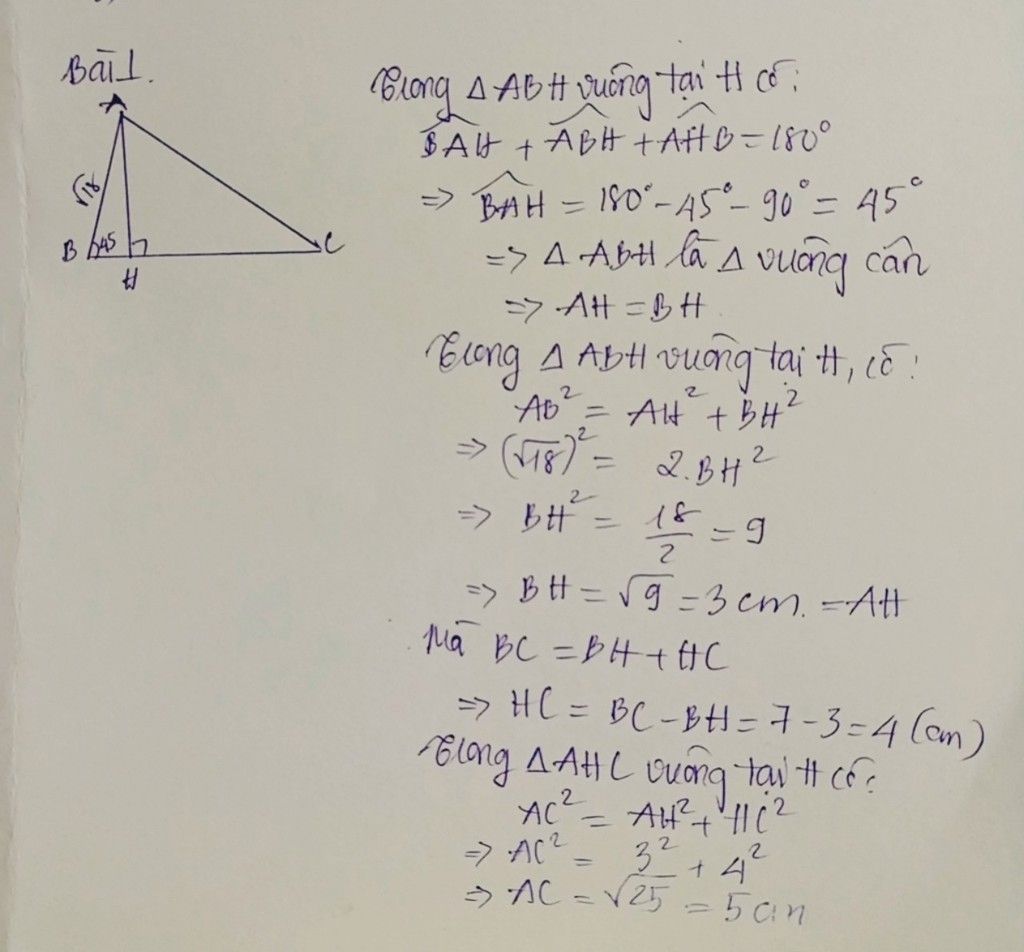 Bài 1.
A
√18
B 45 C
H
Trong Δ ABH vuông tại H có:
BAH + ABH + AHB = 180°
=> BAH = 180° - 45° - 90° = 45°
=> Δ ABH là Δ vuông cân
=> AH = BH
Trong Δ ABH vuông tại H, có:
AB² = AH² + BH²
=> (√18)² = 2.BH²
=> BH² = 18/2 = 9
=> BH = √9 = 3 cm. = AH
Mà BC = BH + HC
=> HC = BC - BH = 7 - 3 = 4 (cm)
Trong Δ AHC vuông tại H có:
AC² = AH² + HC²
=> AC² = 3² + 4²
=> AC = √25 = 5 cm